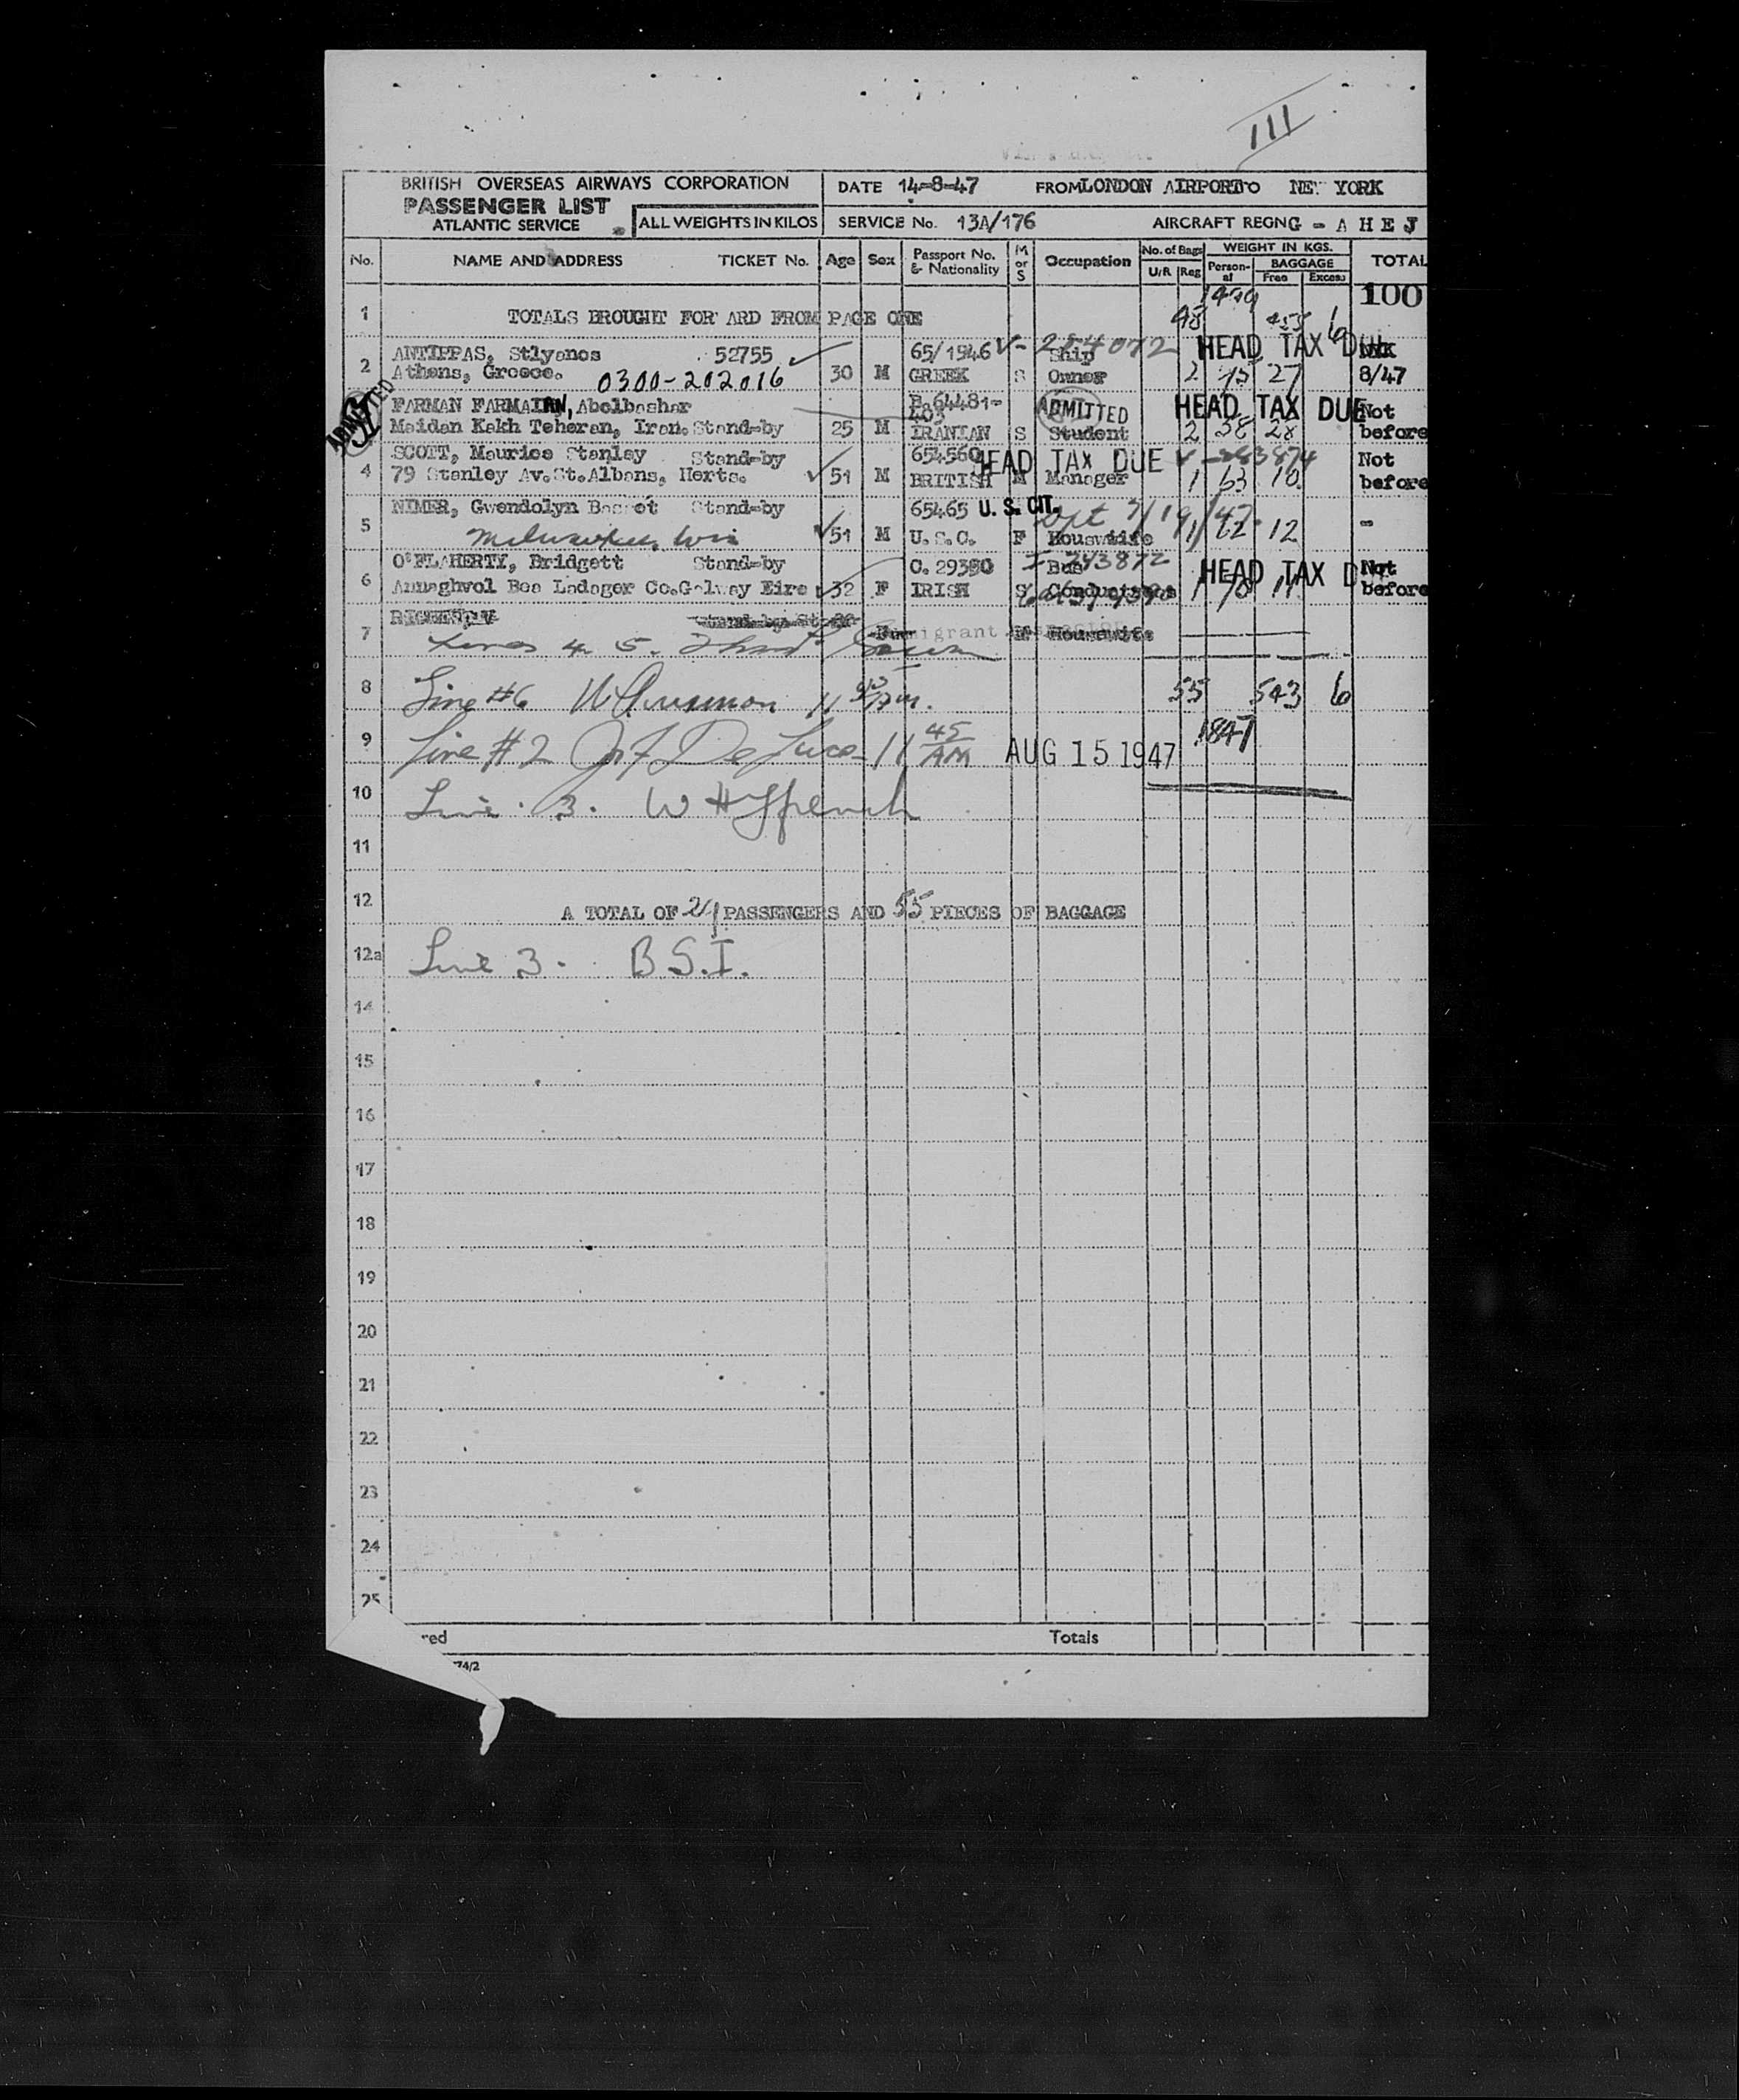 III
BRITISH OVERSEAS AIRWAYS CORPORATION
PASSENGER LIST
ATLANTIC SERVICE
ALL WEIGHTS IN KILOS
DATE 14-8-47 FROM LONDON AIRPORT TO NEW YORK
SERVICE No. 13A/176 AIRCRAFT REGN G - A H E J
No. NAME AND ADDRESS TICKET No. Age Sex Passport No. & Nationality M or S Occupation No. of Bags U/R Reg WEIGHT IN KGS. Personal BAGGAGE Free Excess TOTAL
100
1 TOTALS BROUGHT FOR ARD FROM PAGE ONE 48 6
2 ANTIPPAS, Stlyanos 52755 65/1946 V- 284072 Ship HEAD TAX DUE
Athens, Greece. 0300-202016 30 M GREEK S Owner 2 27 8/47
ADMITTED
FARMAN FARMAIAN, Abolbashar B.64481- ADMITTED HEAD TAX DUE Not
Maidan Kakh Teheran, Iran. Stand-by 25 M IRANIAN S Student 2 28 before
SCOTT, Maurice Stanley Stand-by 654560 HEAD TAX DUE V-283874 Not
4 79 Stanley Av. St. Albans, Herts. 51 M BRITISH M Manager 1 63 10 before
NIMER, Gwendolyn Stand-by 65465 U. S. CIT.
5 Milwaukee, Wis 51 M U.S.C. F Housewife 1 62 12 -
O'FLAHERTY, Bridgett Stand-by C. 29390 Bus HEAD TAX D Not
6 Co. Galway Eire 32 F IRISH S Conductress 1 before
7 Immigrant M Housewife
Lines 4. 5.
8 Line #6 11 55 543 6
9 Line #2 De Luca 11 45 AM AUG 15 1947 1847
10 Line 3. W H French
11
12 A TOTAL OF 21 PASSENGERS AND 55 PIECES OF BAGGAGE
12a Line 3. B.S.I.
14
15
16
17
18
19
20
21
22
23
24
25
red Totals
74/2